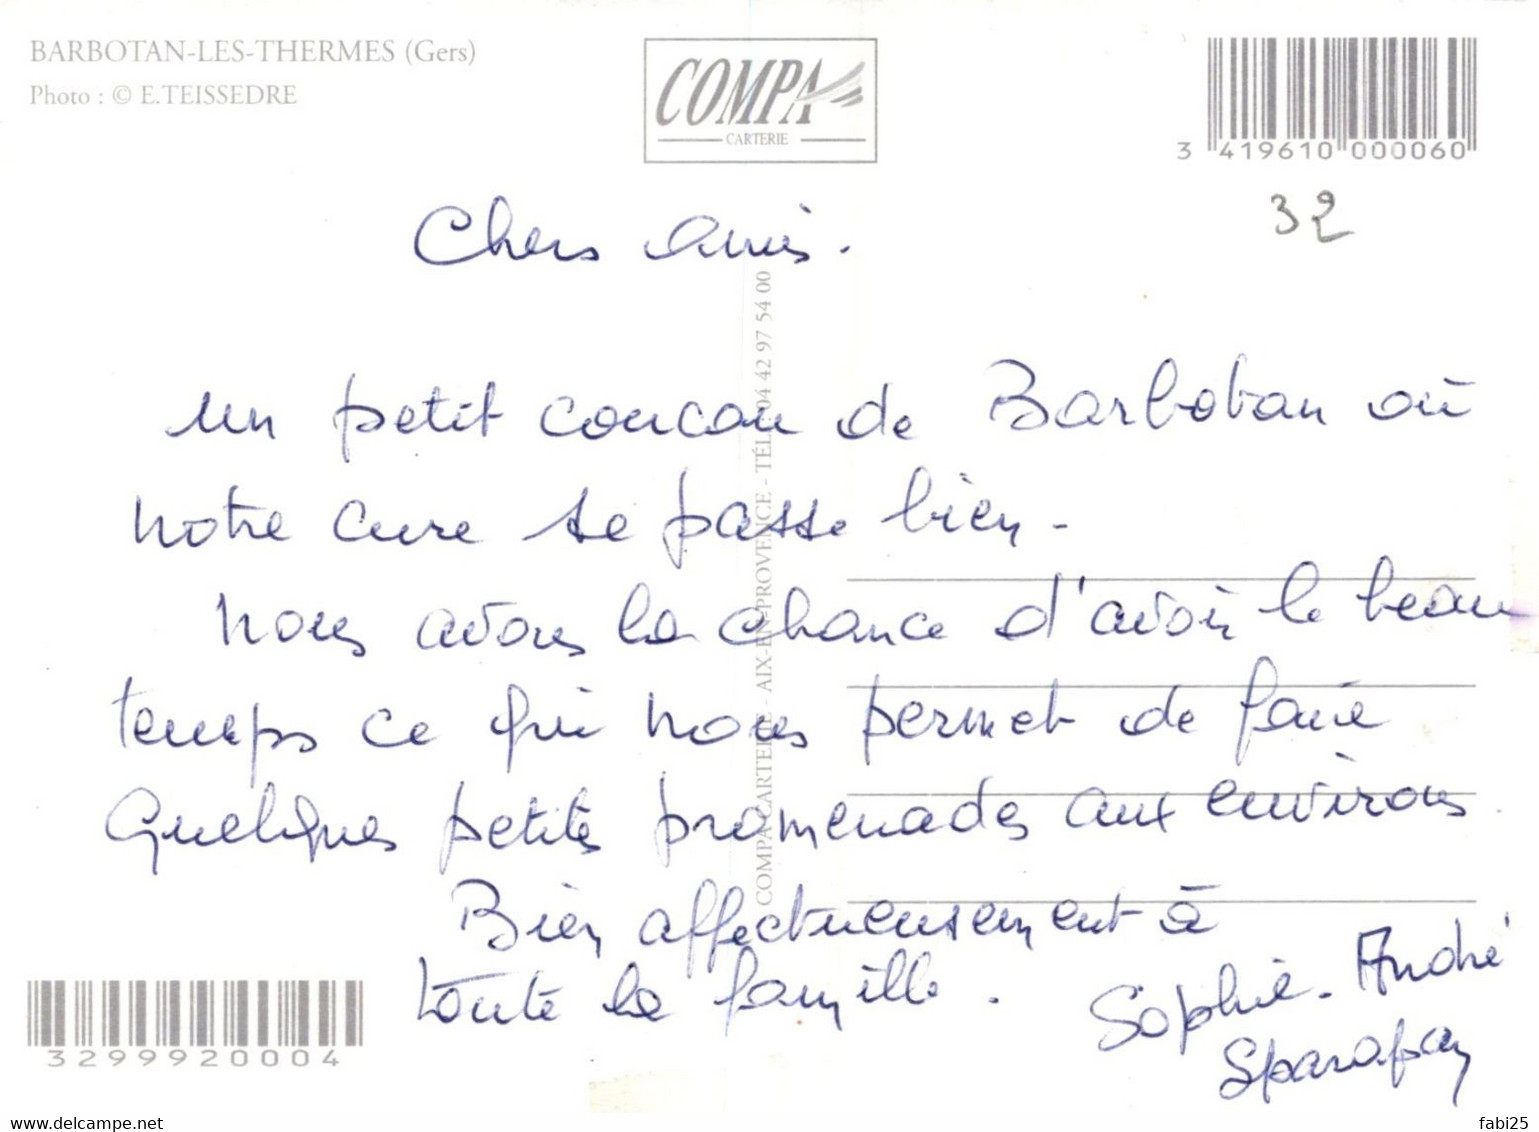 BARBOTAN-LES-THERMES (Gers)
Photo : © E.TEISSEDRE
COMPA
CARTERIE
3 419610 000060
32
Chers amis.
un petit coucou de Barbotan où
notre cure se passe bien -
Nous avons la chance d'avoir le beau
temps ce qui nous permet de faire
Quelques petites promenades aux environs.
Bien affectueusement à
toute la famille.
Sophie - André
Sparapan
COMPA CARTERIE - AIX-EN-PROVENCE - TÉL. 04 42 97 54 00
3299920004
www.delcampe.net
fabi25